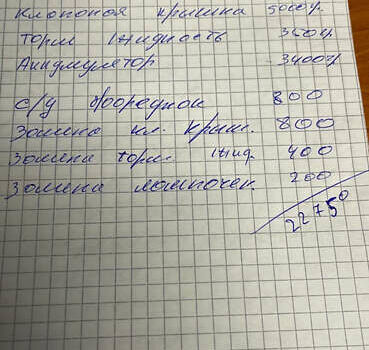 Клапоноя крышка 5000ч
Торм жидкость 350ч
Аккумулятор 3400ч
с/у 800
Замена кл. крыш. 800
Замена торм жид. 400
Замена лампочек. 200
22750